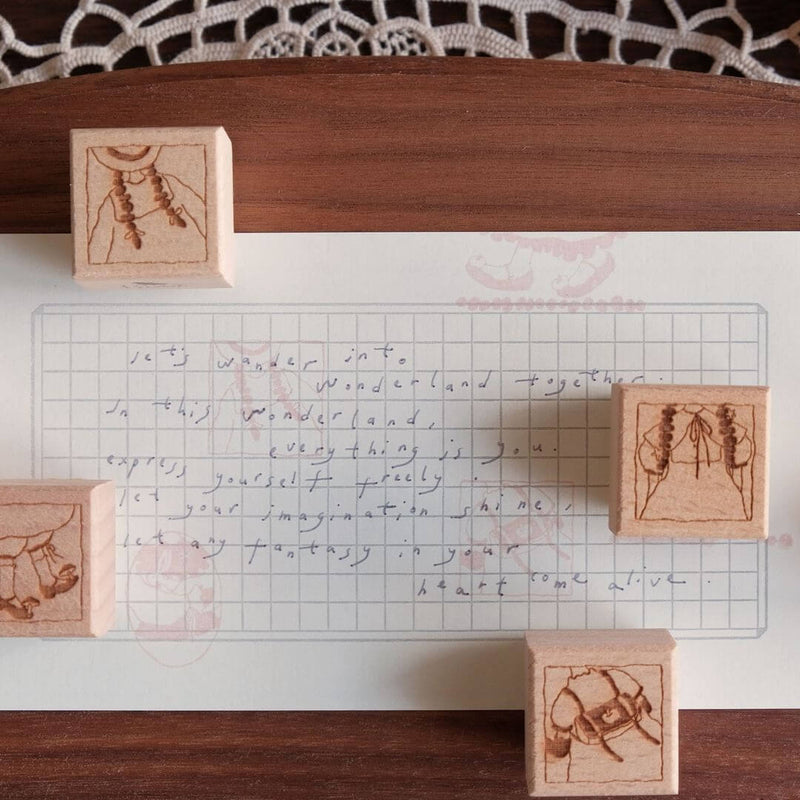 let's wander into
wonderland together.
in this wonderland,
everything is you.
express yourself freely.
let your imagination shine,
let any fantasy in your
heart come alive.